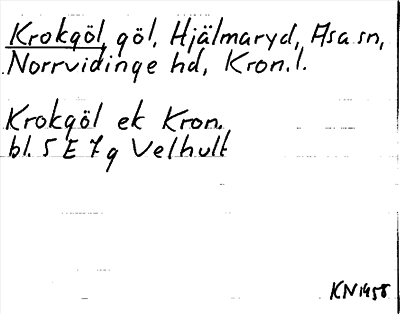 Krokgöl, göl, Hjälmaryd, Asa sn,
Norrvidinge hd, Kron. l.
Krokgöl ek Kron.
bl. 5 E 7 g Velhult
KN 1958